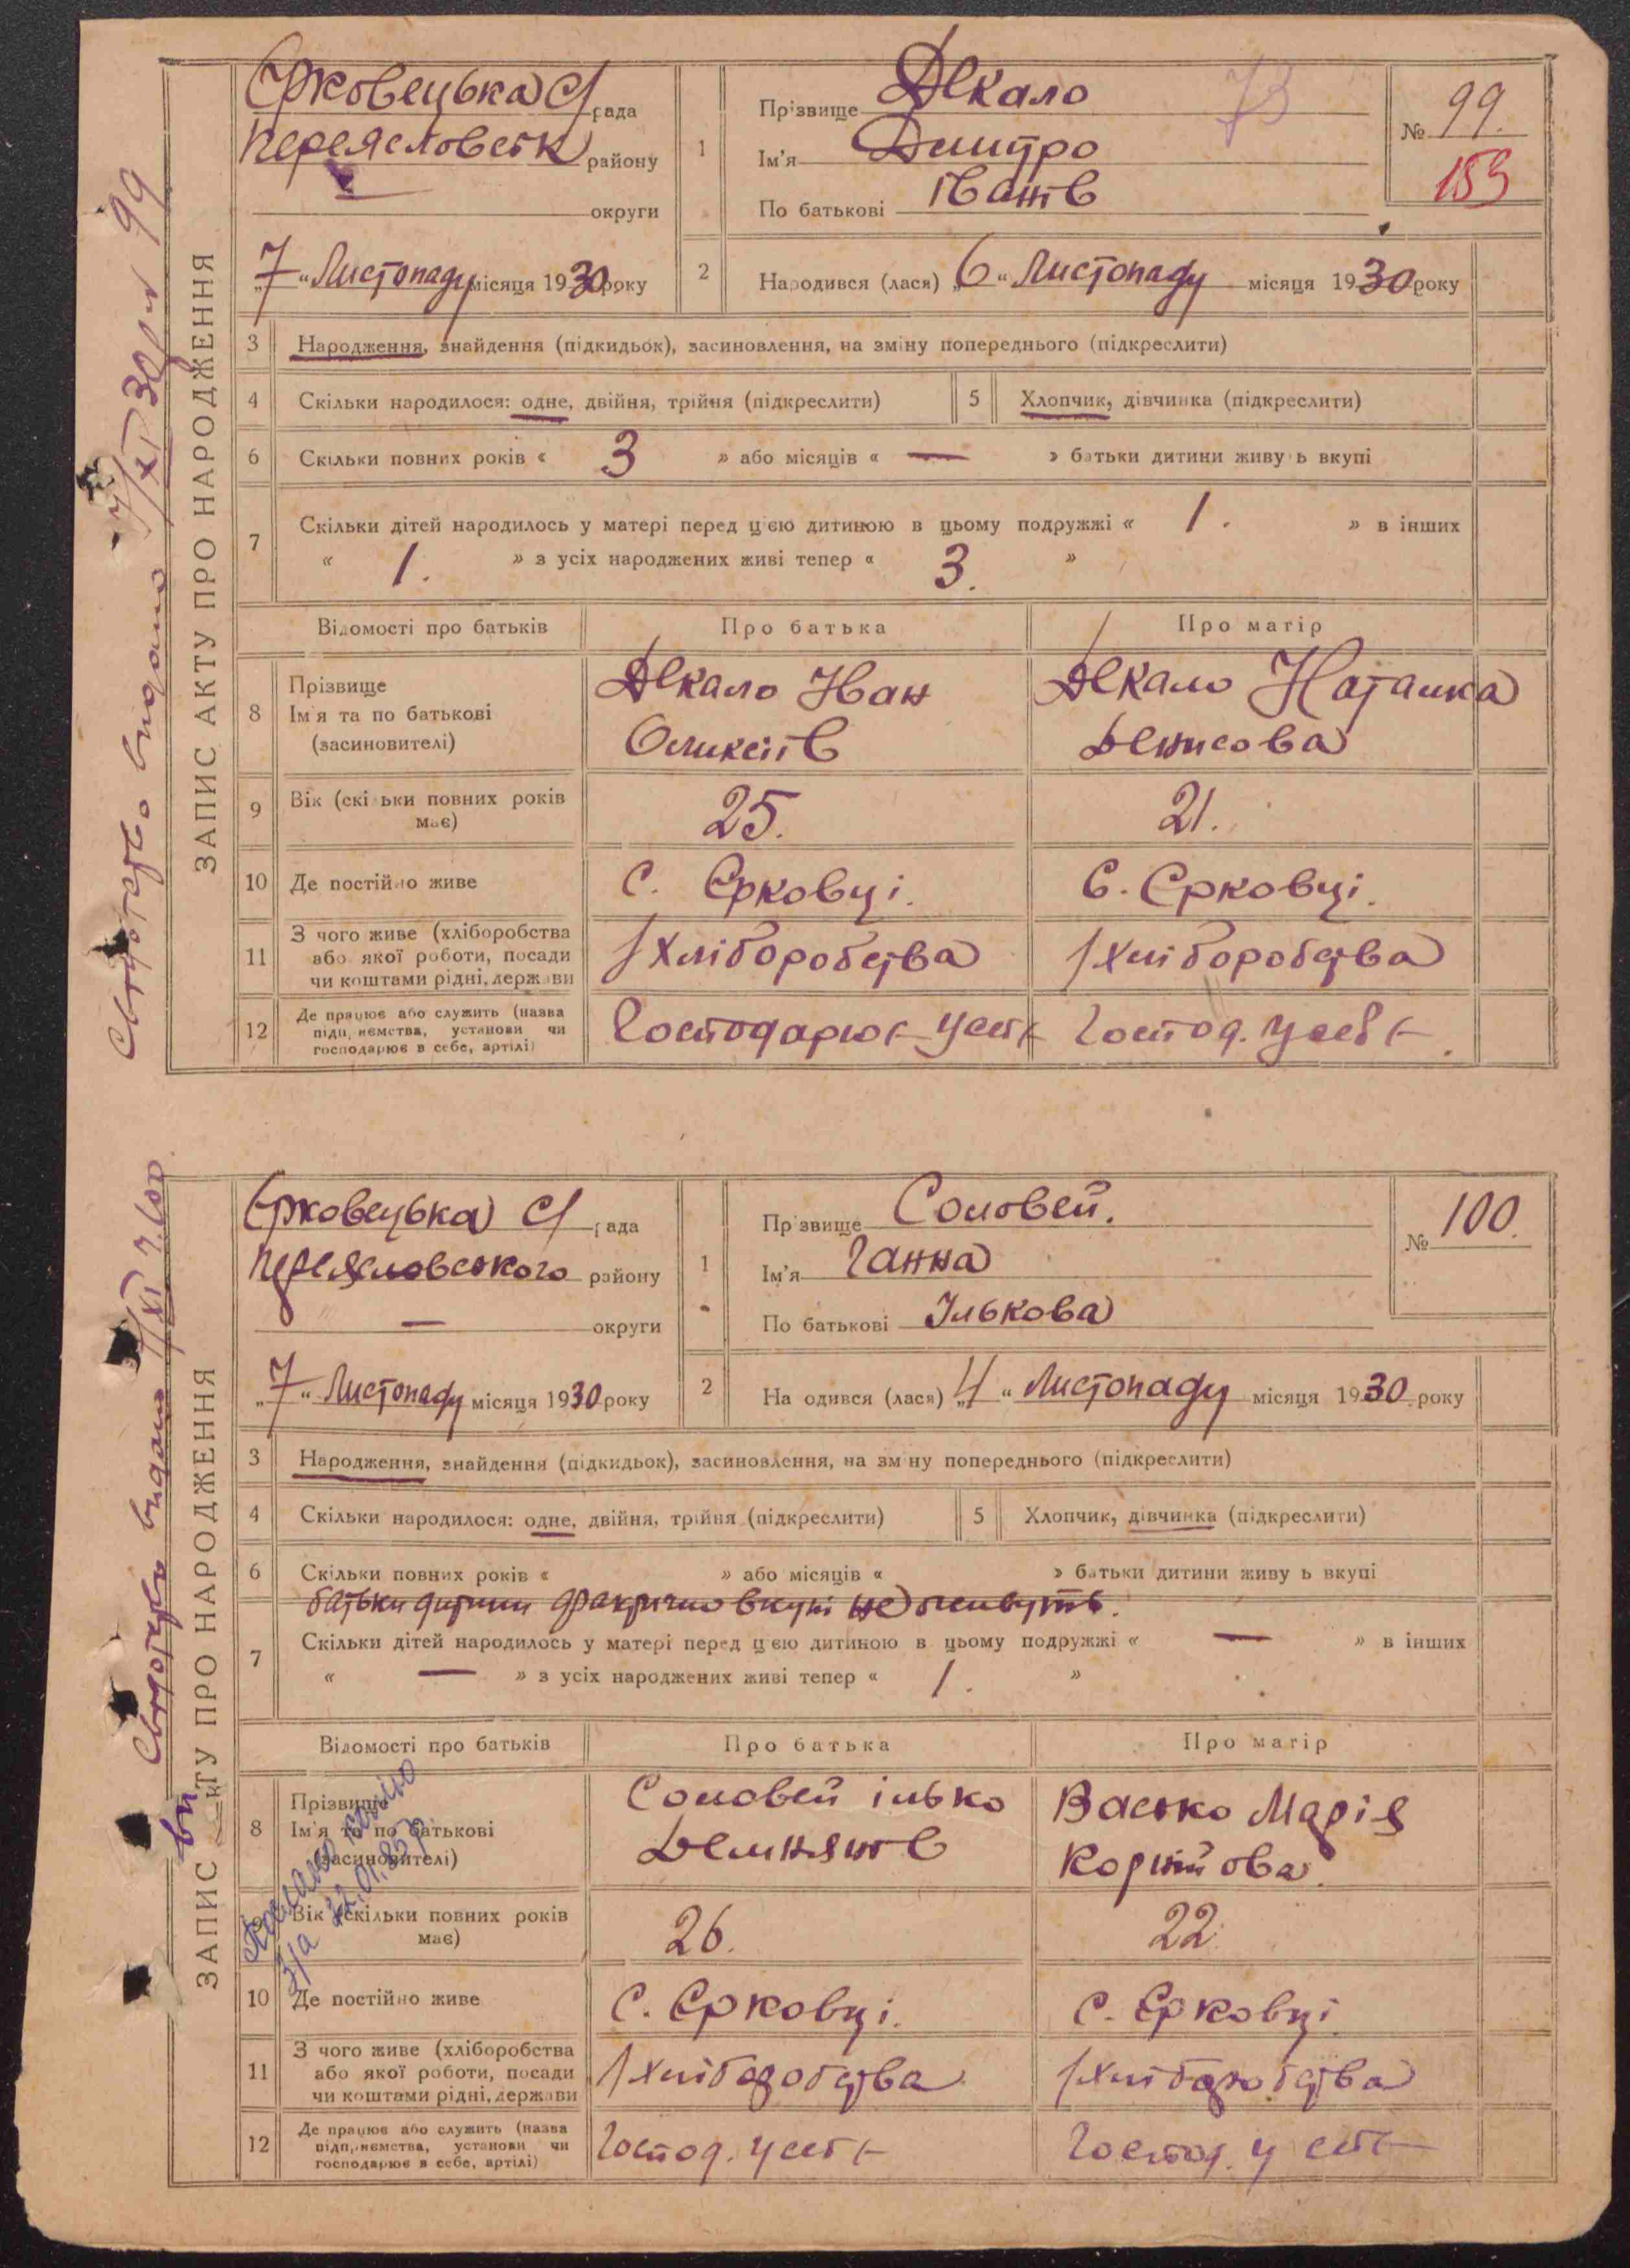 Єрковецька С/рада
Переясловськ району
округи
„7“ Листопаду місяця 1930 року
1
Прізвище Декало
Ім'я Дмитро
По батькові Іванів
73
№ 99.
159
2
Народився (лася) „6“ Листопаду місяця 1930 року
ЗАПИС АКТУ ПРО НАРОДЖЕННЯ
видано 7/XI 30 р № 99
3 Народження, знайдення (підкидьок), засиновлення, на зміну попереднього (підкреслити)
4 Скільки народилося: одне, двійня, трійня (підкреслити)
5 Хлопчик, дівчинка (підкреслити)
6 Скільки повних років « 3 » або місяців « — » батьки дитини живу ь вкупі
7 Скільки дітей народилось у матері перед цією дитиною в цьому подружжі « 1. » в інших
« 1. » з усіх народжених живі тепер « 3. »
Відомості про батьків
Про батька
Про матір
8 Прізвище
Ім'я та по батькові
(засиновителі)
Декало Іван
Оликсіїв
Декало Наталка
Денисова
9 Вік (скільки повних років
має)
25.
21.
10 Де постійно живе
С. Єрковці.
С. Єрковці.
11 З чого живе (хліборобства
або якої роботи, посади
чи коштами рідні, держави
/Хліборобства
/Хліборобства
12 Де працює або служить (назва
підприємства, установи чи
господарює в себе, артілі)
Господарює у себе
Господ. у себе
Єрковецька С/рада
Переясловського району
— округи
„7“ Листопаду місяця 1930 року
1
Прізвище Соловей.
Ім'я Ганна
По батькові Ількова
№ 100.
2
Народився (лася) „4“ Листопаду місяця 1930 року
ЗАПИС АКТУ ПРО НАРОДЖЕННЯ
видано 7/XI №100
3 Народження, знайдення (підкидьок), засиновлення, на зміну попереднього (підкреслити)
4 Скільки народилося: одне, двійня, трійня (підкреслити)
5 Хлопчик, дівчинка (підкреслити)
6 Скільки повних років « » або місяців « » батьки дитини живу ь вкупі
батьки дитини фактично вкупі не живуть.
7 Скільки дітей народилось у матері перед цією дитиною в цьому подружжі « — » в інших
« — » з усіх народжених живі тепер « 1. »
Відомості про батьків
Про батька
Про матір
8 Прізвище
Ім'я та по батькові
(засиновителі)
Соловей ілько
Демянів
Васько Марія
9 Вік (скільки повних років
має)
26.
22.
10 Де постійно живе
С. Єрковці.
С. Єрковці
11 З чого живе (хліборобства
або якої роботи, посади
чи коштами рідні, держави
/Хліборобства
/Хліборобства
12 Де працює або служить (назва
підприємства, установи чи
господарює в себе, артілі)
Господ. у себе
Господ. у себе